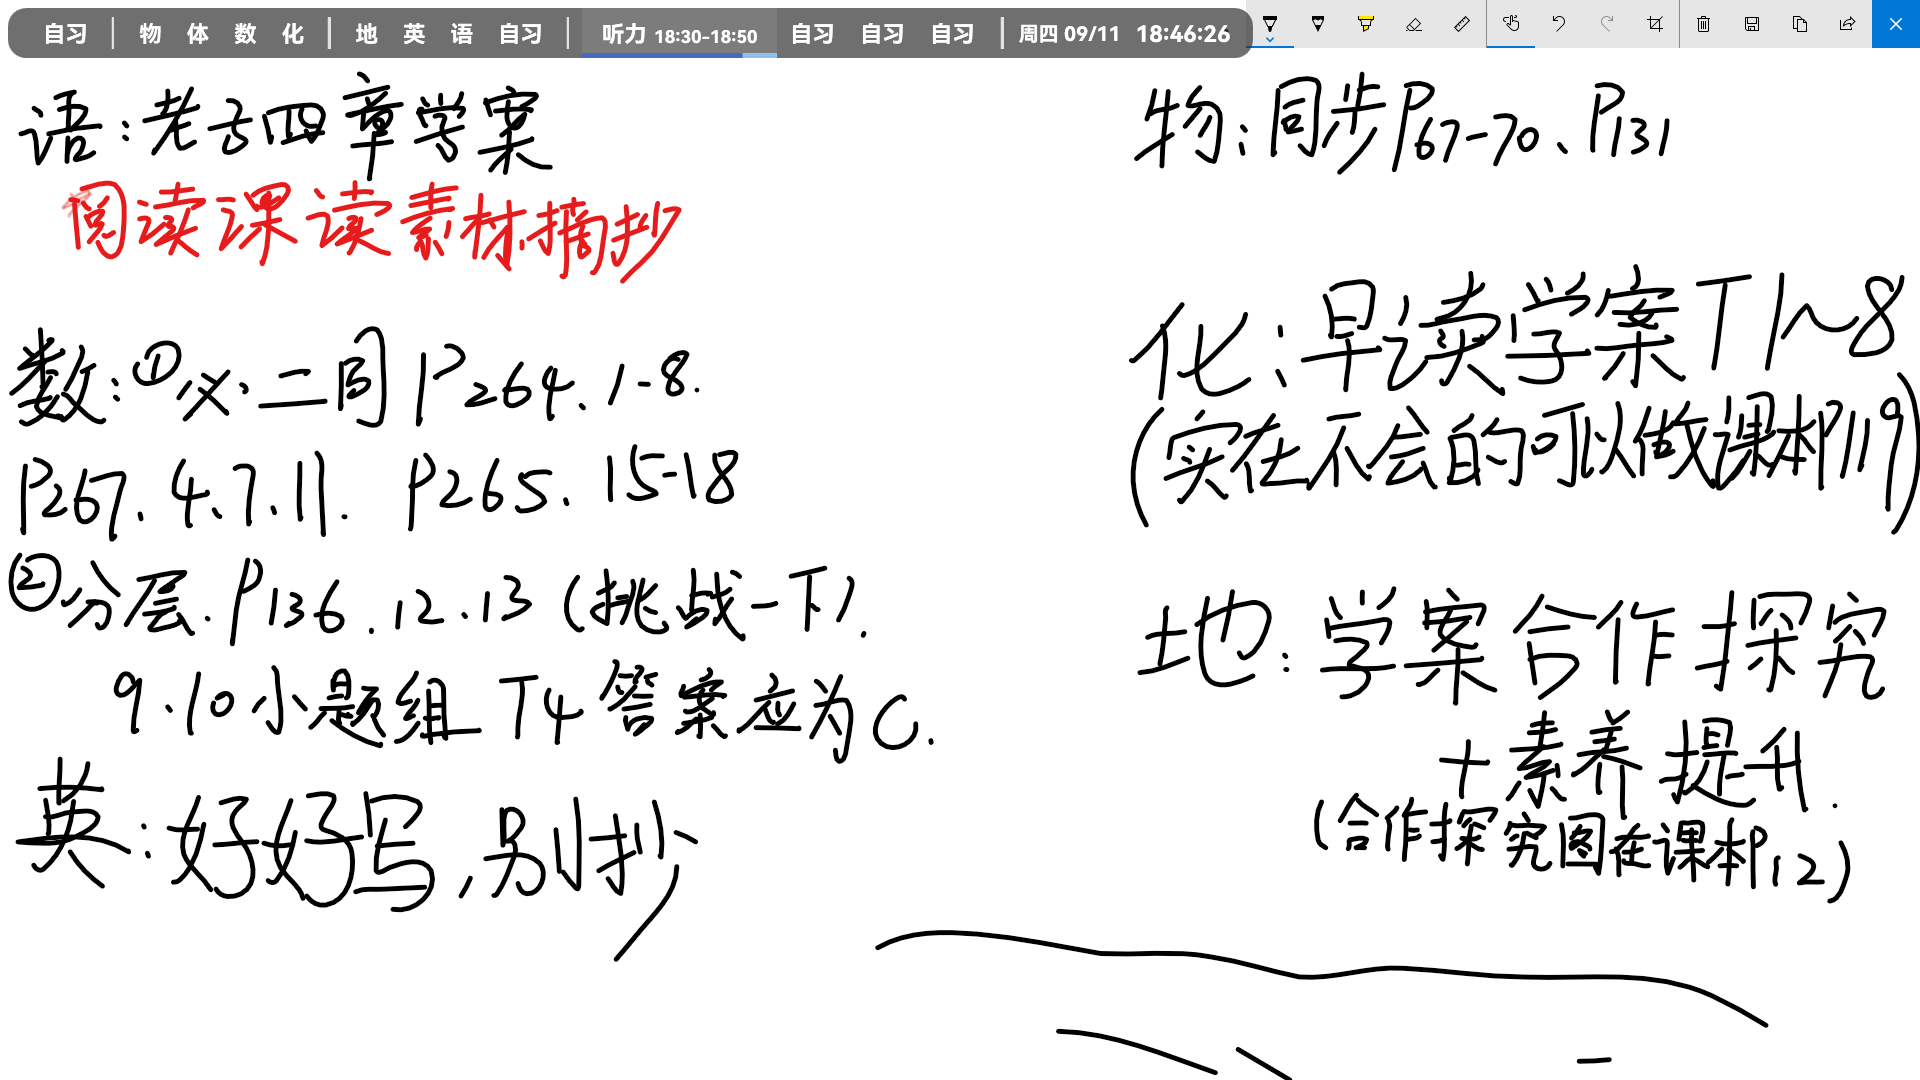 自习 | 物 体 数 化 | 地 英 语 自习 | 听力 18:30-18:50 自习 自习 自习 | 周四 09/11 18:46:26
语:老子四章学案
阅读课读素材摘抄
数:①必二 同 P264. 1-8.
P267. 4. 7. 11. P265. 15-18
②分层. P136. 12. 13 (挑战一下).
9.10小题组 T4 答案应为C.
英:好好写,别抄
物:同步P67-70、P131
化:早读学案T1~8
(实在不会的可以做课本P119)
地:学案合作探究
+素养提升.
(合作探究图在课本P12)